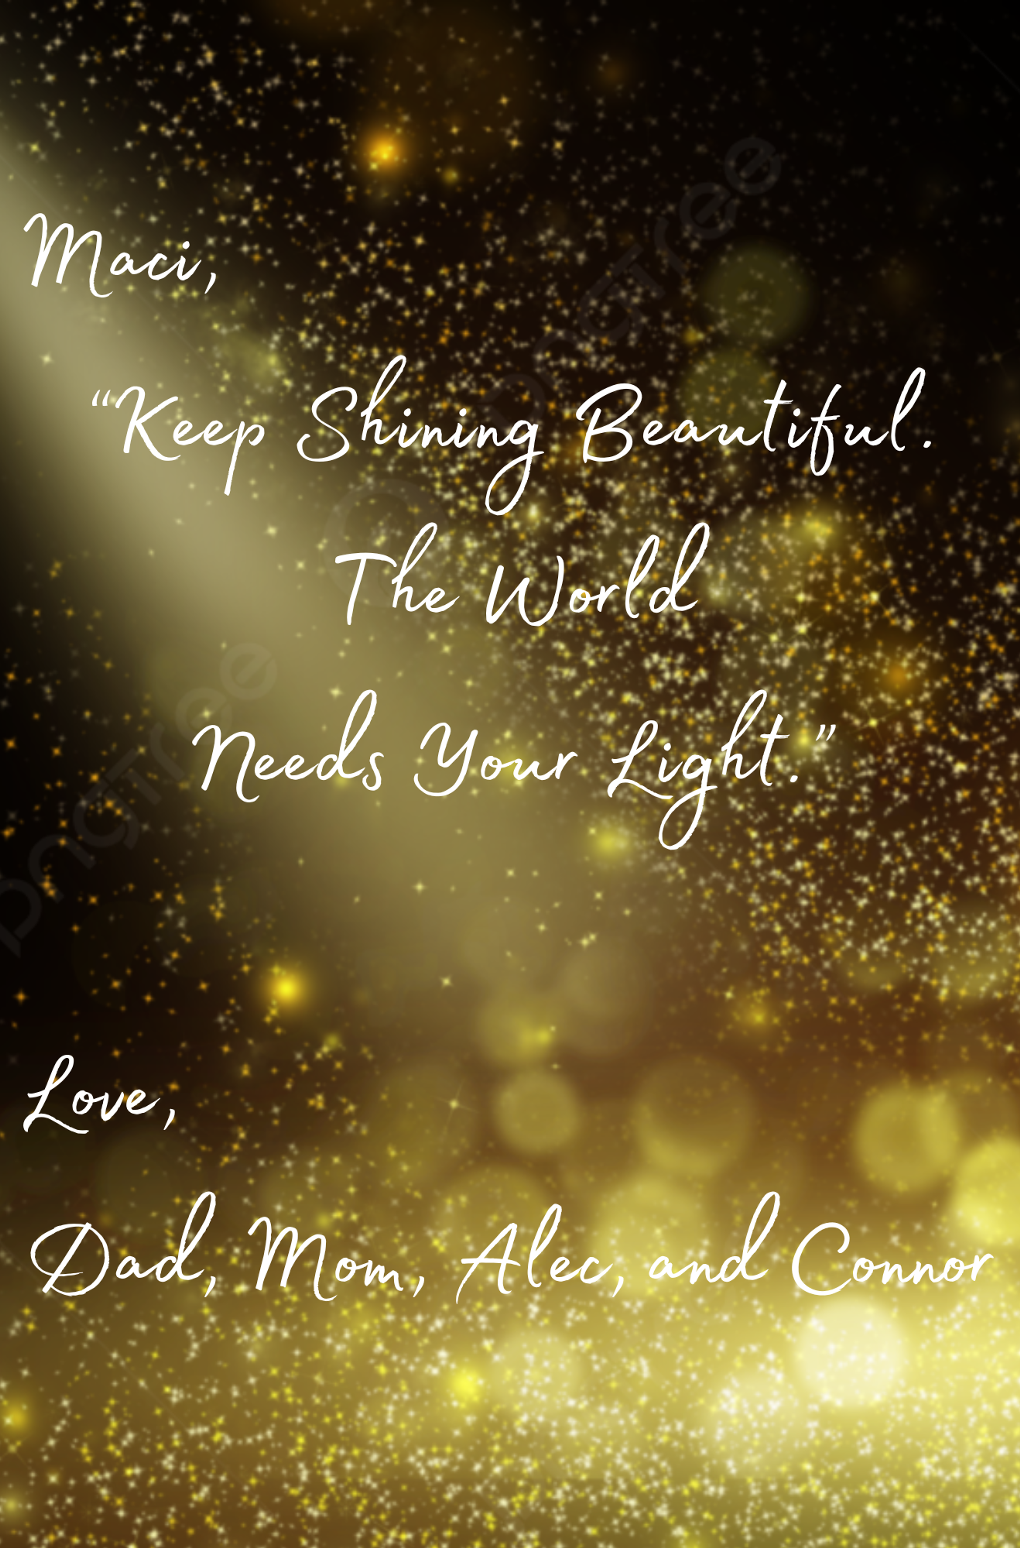 Maci,
“Keep Shining Beautiful.
The World
Needs Your Light.”
Love,
Dad, Mom, Alec, and Connor
pngtree
pngtree